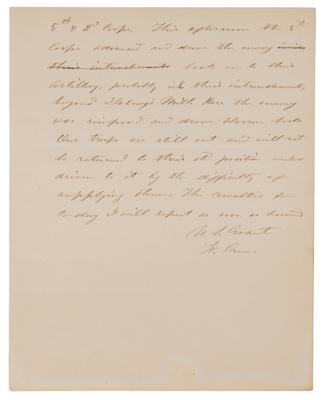 5th & 2d Corps. This afternoon the 5th
Corps advanced and drove the enemy
their intrenchments back on to their
Artillery, probably in their intrenchments,
beyond Dabney's Mill. Here the enemy
was reinforced and drove Warren back.
Our troops are still out and will not
be returned to their old position unless
driven to it by the difficulty of
supplying them. The casualties for
to-day I will report as soon as learned.
U. S. Grant
Lt. Gen.